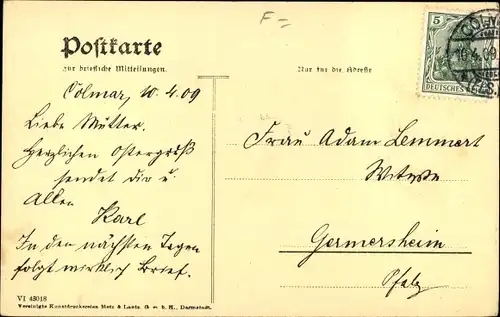 F=
Postkarte
zur briefliche Mitteilungen.
Nur für die Adresse
5
DEUTSCHES
10.4.09
Colmar, 10.4.09
Liebe Mutter.
Herzlichen Ostergruß
sendet dir u.
Allen
Karl
In den nächsten Tagen
folgt Brief.
Frau Adam Lemmert
Witwe
Germersheim
Pfalz
VI 48018
Vereinigte Kunstdruckereien Metz & Lautz, G. m. b. H., Darmstadt.